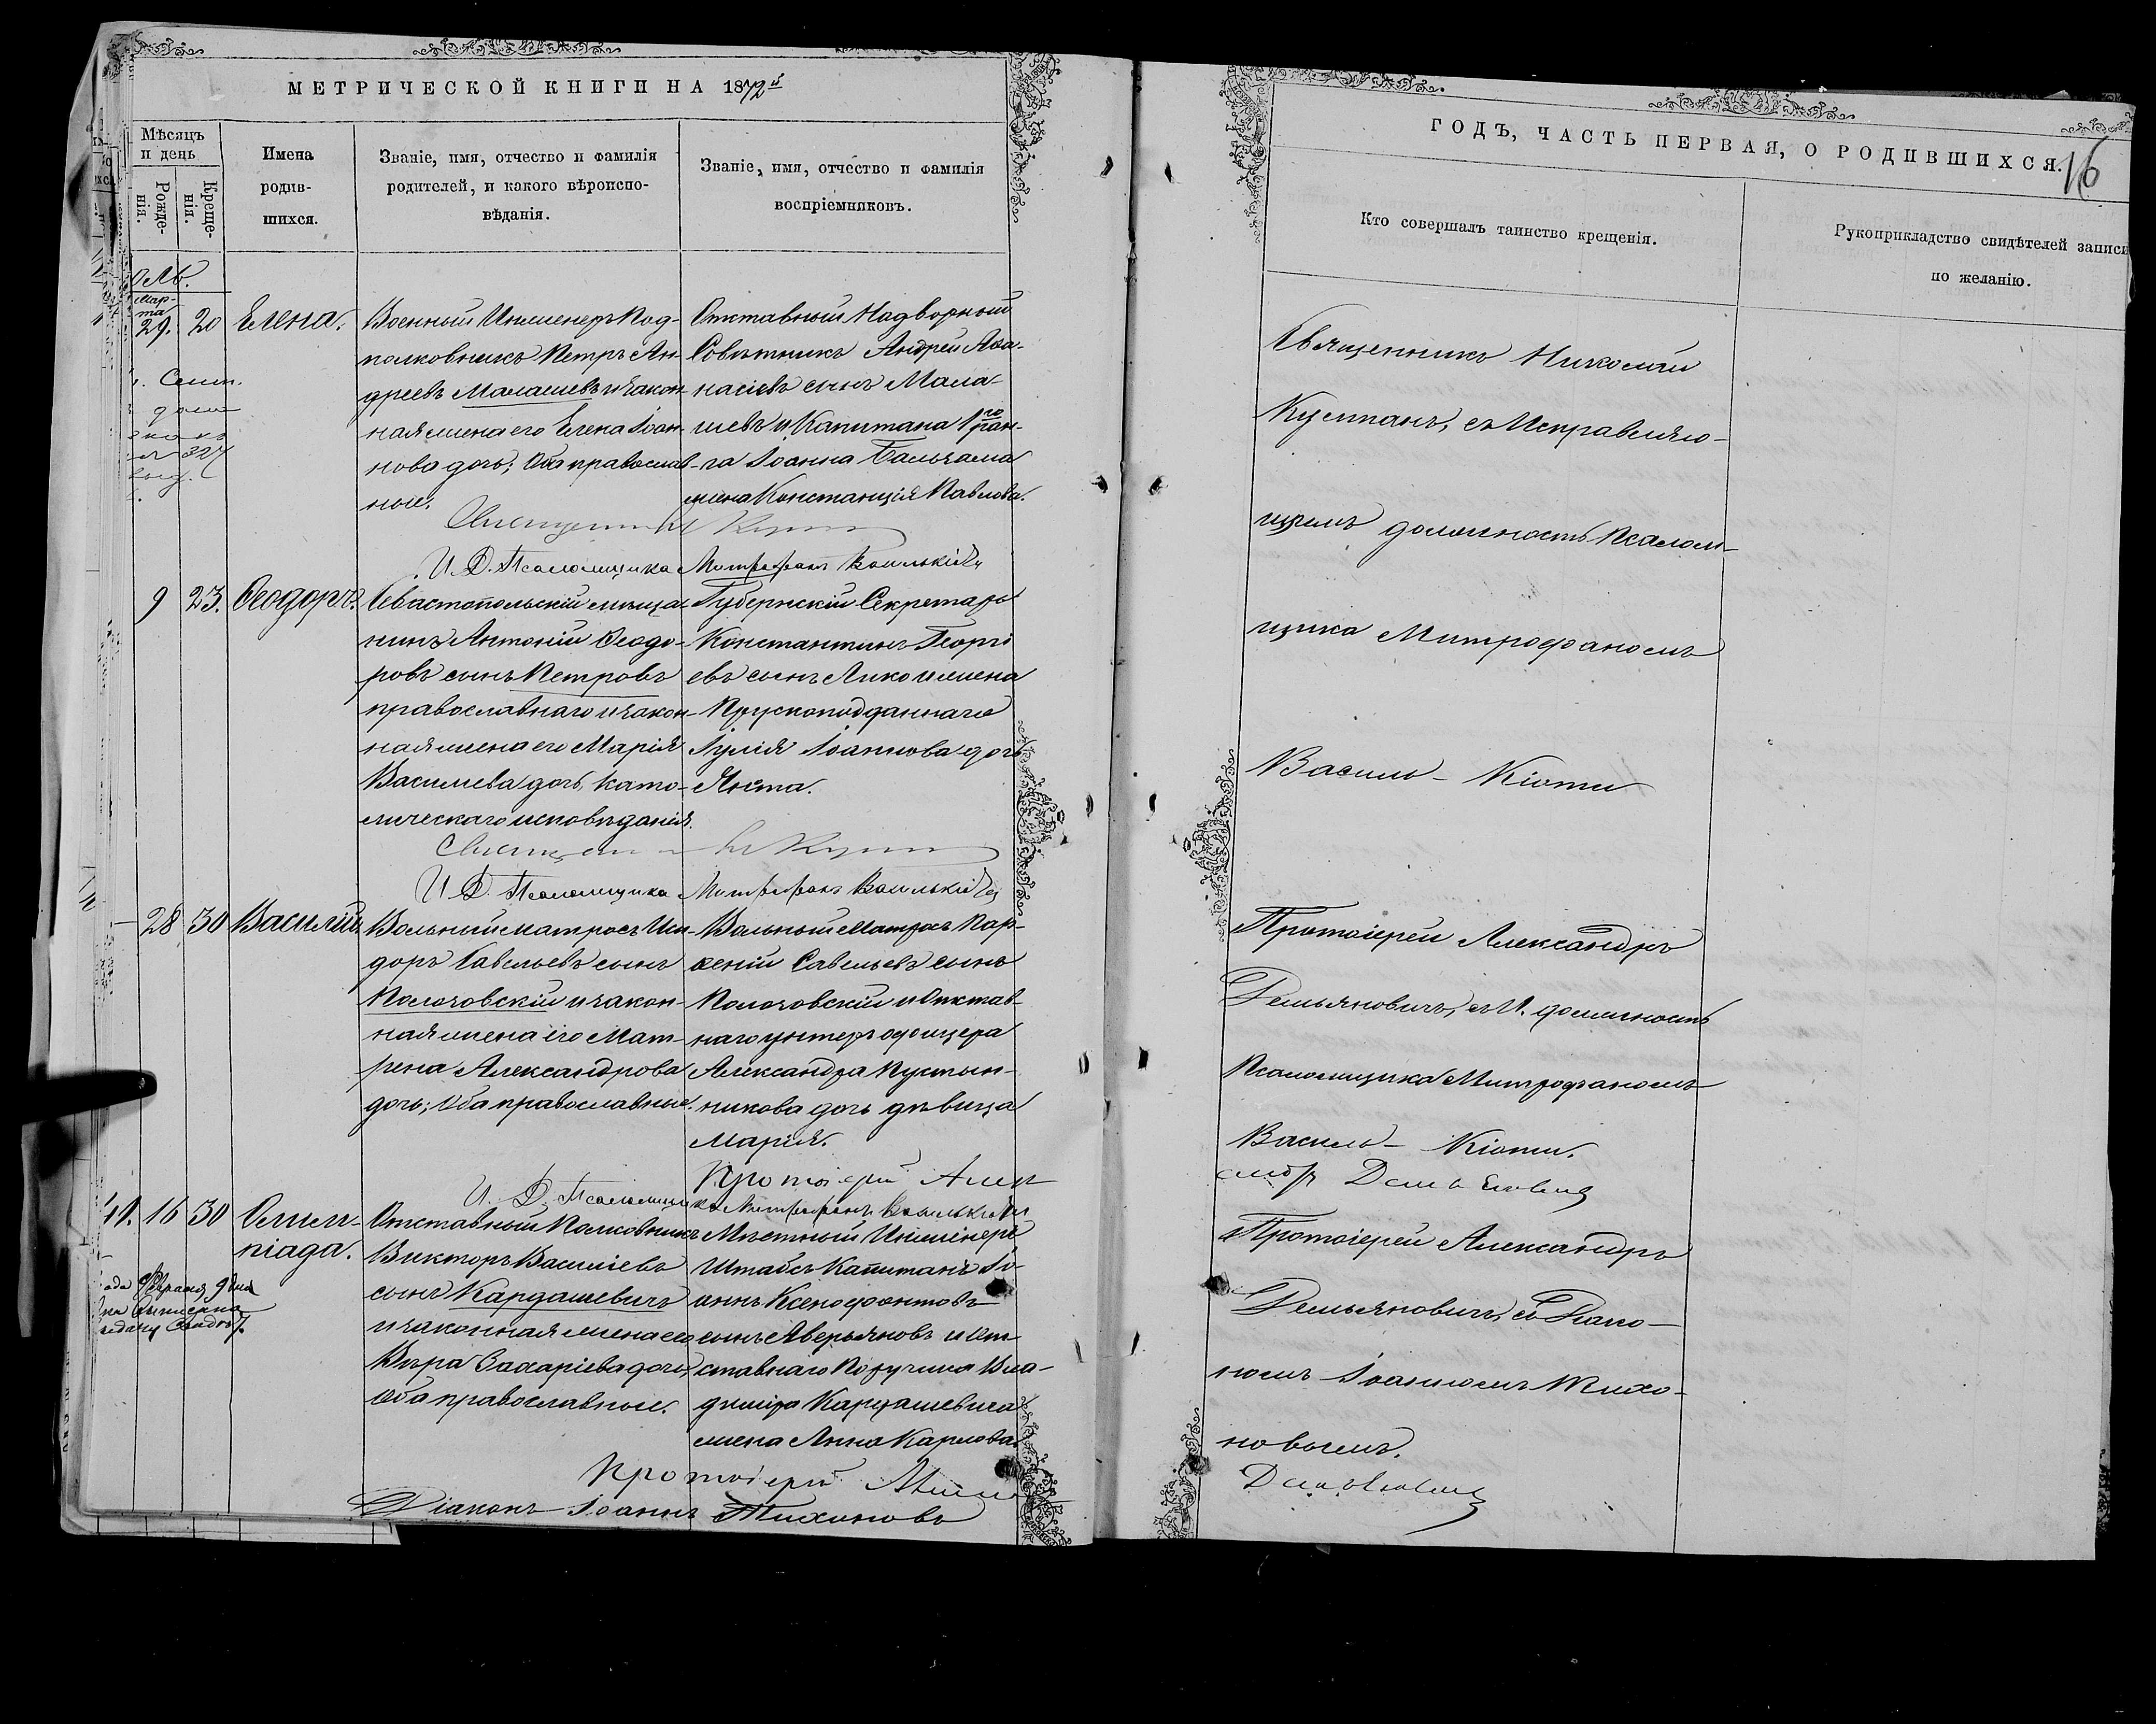 МЕТРИЧЕСКОЙ КНИГИ НА 1872й
Мѣсяцъ
и день
Рожде-
нія.
Креще-
нія.
Имена
родив-
шихся.
Званіе, имя, отчество и фамилія
родителей, и какого вѣроиспо-
вѣданія.
Званіе, имя, отчество и фамилія
воспріемниковъ.
Мар-
та
29. 20 Елена.
Военный Инженеръ Под-
полковникъ Петръ Ан-
дреевъ Малашевъ и закон-
ная жена его Елена Іоан-
нова дочь; Оба православ-
ные.
Отставный Надворный
Совѣтникъ Андрей Аѳа-
насіевъ сынъ Мала-
шевъ и Капитана 1го ран-
га Іоанна Бальзама
жена Констанція Павлова.
И. Д. Псаломщика Митрофанъ Василькіоти
9 23. Ѳеодоръ.
Севастопольскій мѣща-
нинъ Антоній Ѳеодо-
ровъ сынъ Петровъ
православнаго и закон-
ная жена его Марія
Васильева дочь, като-
лическаго исповѣданія.
Губернскій Секретарь
Константинъ Георгі
евъ сынъ Лико и жена
Прускоподданнаго
Іулія Іоаннова дочь
И. Д. Псаломщика Митрофанъ Василькіоти
28 30 Василій
Вольный матросъ Иси-
доръ Савельевъ сынъ
Положовскій и закон-
ная жена его Мат-
рена Александрова
дочь; Оба православные.
Вольный Матросъ Пар-
ѳеній Савельевъ сынъ
Положовскій и Отстав-
наго унтеръ офицера
Александра Пустын-
никова дочь дѣвица
Марія.
Протоіерей Алек
И. Д. Псаломщика Митрофанъ Василькіоти
16 30 Олим-
піада.
Отставный Полковникъ
Викторъ Василіевъ
сынъ Кардашевичъ
и законная жена его
Вѣра Захаріева дочь,
оба православные.
Мѣстный Инженеръ
Штабсъ Капитанъ Іо-
аннъ Ксенофонтовъ
сынъ Аверьяновъ и От-
ставнаго Поручика Вла-
диміра Кардашевича
жена Анна Карлова.
Протоіерей
Діаконъ Іоаннъ Тихоновъ
ГОДЪ, ЧАСТЬ ПЕРВАЯ, О РОДИВШИХСЯ.
16
Кто совершалъ таинство крещенія.
Рукоприкладство свидѣтелей записи
по желанію.
Священникъ Николай
съ Исправляю-
щимъ должность Псалом-
щика Митрофаномъ
Василь-Кіоти
Протоіерей Александръ
Демьяновичъ, съ И. должность
Псаломщика Митрофаномъ
Василь-Кіоти.
Протоіерей Александръ
Демьяновичъ, съ Діако-
номъ Іоанномъ Тихо-
новымъ.